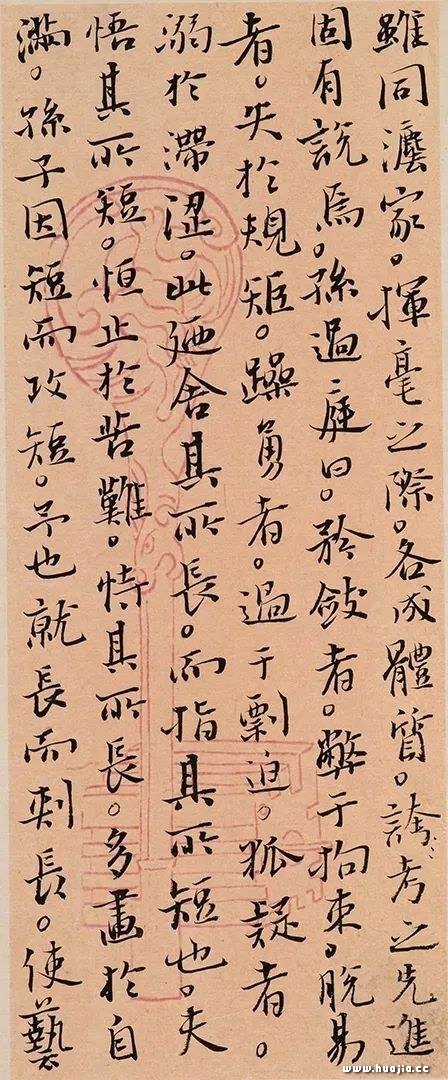 雖同灋家。揮毫之際。各成體質。誇考之先進
固有說焉。孫過庭曰。矜斂者。弊于拘束。脫易
者。失於規矩。躁勇者。過于剽迫。狐疑者。
溺於滯澀。此廼舍其所長。而指其所短也。夫
悟其所短。恒止於苦難。恃其所長。多畫於自
滿。孫子因短而攻短。予也就長而刺長。使藝
www.huajia.cc